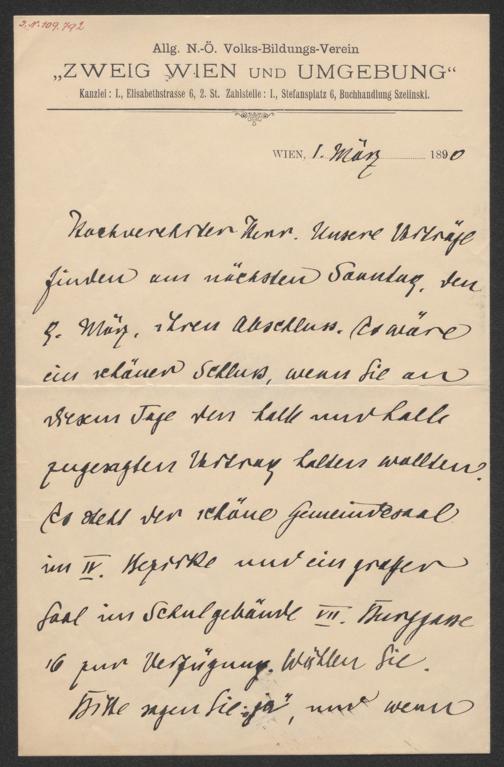 J.N. 109.792
Allg. N.-Ö. Volks-Bildungs-Verein
„ZWEIG WIEN UND UMGEBUNG“
Kanzlei: I., Elisabethstrasse 6, 2. St. Zahlstelle: I., Stefansplatz 6, Buchhandlung Szelinski.
WIEN, 1. März 1890
Hochverehrter Herr. Unsere Vorträge
finden am nächsten Sonntag, den
9. März, ihren Abschluss. Es wäre
ein schöner Schluss, wenn Sie an
diesem Tage den halb und halb
zugesagten Vortrag halten wollten.
Es steht der schöne Gemeindesaal
im IV. Bezirke und ein großer
Saal im Schulgebäude VII. Burggasse
16 zur Verfügung. Wählen Sie.
Bitte sagen Sie „ja“, und wenn